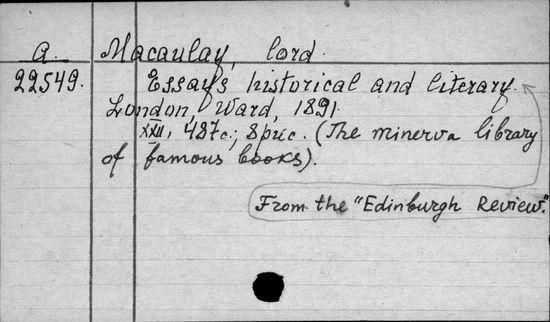 a. Macaulay, lord.
22549. Essays historical and literary.
London, Ward, 1891.
XXII, 487c.; 8рис. (The minerva library
of famous books).
From the "Edinburgh Review".